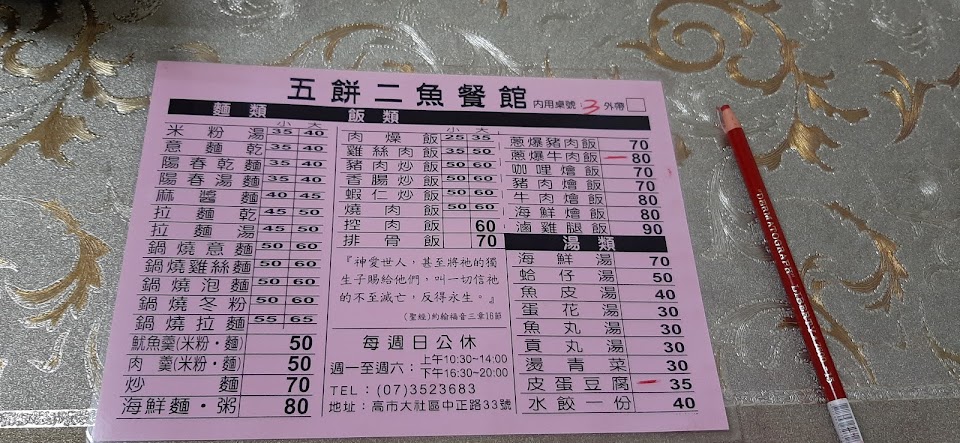 五餅二魚餐館 內用桌號:3 外帶
麵類
小 大
米粉湯 35 40
意麵乾 35 40
陽春乾麵 35 40
陽春湯麵 35 40
麻醬麵 40 45
拉麵乾 45 50
拉麵湯 45 50
鍋燒意麵 50 60
鍋燒雞絲麵 50 60
鍋燒泡麵 50 60
鍋燒冬粉 50 60
鍋燒拉麵 55 65
魷魚羹(米粉・麵) 50
肉羹(米粉・麵) 50
炒麵 70
海鮮麵・粥 80
飯類
小 大
肉燥飯 25 35
雞絲肉飯 35 50
豬肉炒飯 50 60
香腸炒飯 50 60
蝦仁炒飯 50 60
燒肉飯 50 60
控肉飯 60
排骨飯 70
『神愛世人,甚至將祂的獨
生子賜給他們,叫一切信祂
的不至滅亡,反得永生。』
(聖經)約翰福音三章16節
每週日公休
週一至週六:上午10:30~14:00
下午16:30~20:00
TEL:(07)3523683
地址:高市大社區中正路33號
蔥爆豬肉飯 70
蔥爆牛肉飯 80
咖哩燴飯 70
豬肉燴飯 70
牛肉燴飯 80
海鮮燴飯 80
滷雞腿飯 90
湯類
海鮮湯 70
蛤仔湯 50
魚皮湯 40
蛋花湯 30
魚丸湯 30
貢丸湯 30
燙青菜 30
皮蛋豆腐 35
水餃一份 40
DERMATOGRAPH